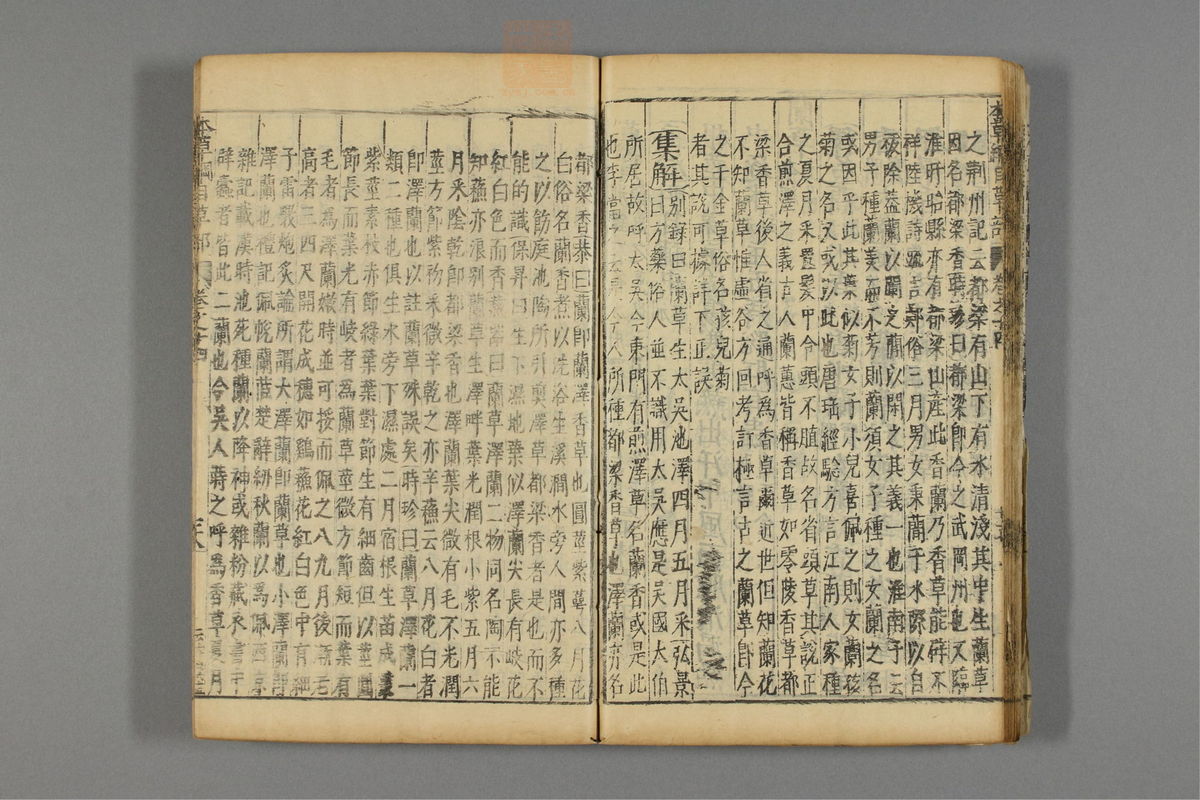 本草綱目草部 卷之十四
之荆州記云都梁有山下有水清淺其中生蘭草
因名都梁香時珍曰都梁即今之武岡州也又臨
淮盱眙縣亦有都梁山產此香蘭乃香草能辟不
祥陸璣詩疏言鄭俗三月男女秉蕑于水際以自
祓除蓋蘭以闌之蕑以閑之其義一也淮南子云
男子種蘭美而不芳則蘭須女子種之女蘭之名
或因乎此其葉似菊女子小兒喜佩之則女蘭孩
菊之名又或以此也唐瑶經驗方言江南人家種
之夏月采置髮中令頭不䐈故名省頭草其說正
合煎澤之義言人蘭蕙皆稱香草如零陵香草都
梁香草後人省之通呼為香草爾近世但知蘭花
不知蘭草惟虛谷方回考訂極言古之蘭草即今
之千金草俗名孩兒菊
者其說可據詳下正誤
集解別錄曰蘭草生太吳池澤四月五月采弘景
曰方藥俗人並不識用太吳應是吳國太伯
所居故呼太吳今東門有煎澤草名蘭香或是此
也李當之云是今人所種都梁香草也澤蘭亦名
都梁香恭曰蘭即蘭澤香草也圓莖紫萼八月花
白俗名蘭香煮以洗浴生溪澗水旁人間亦多種
之以飾庭池陶所引煎澤草都梁香者是也而不
能的識保昇曰生下濕地葉似澤蘭尖長有岐花
紅白色而香藏器曰蘭草澤蘭二物同名陶不能
知蘇亦浪别蘭草生澤畔葉光潤根小紫五月六
月采陰乾即都梁香也澤蘭葉尖微有毛不光潤
莖方節紫初采微辛乾之亦辛蘇云八月花白者
即澤蘭也以註蘭草殊誤矣時珍曰蘭草澤蘭一
類二種也俱生水旁下濕處二月宿根生苗成叢
紫莖素枝赤節緑葉葉對節生有細齒但以莖圓
節長而葉光有岐者為蘭草莖微方節短而葉有
毛者為澤蘭嫩時並可挼而佩之八九月後漸老
高者三四尺開花成穗如鷄蘇花紅白色中有細
子雷斅炮炙論所謂大澤蘭即蘭草也小澤蘭即
澤蘭也禮記佩帨蘭茝楚辭紉秋蘭以為佩西京
雜記載漢時池苑種蘭以降神或雜粉藏衣書中
辟蠹者皆此二蘭也今吳人蒔之呼為香草夏月
本草綱目草部 卷之十四